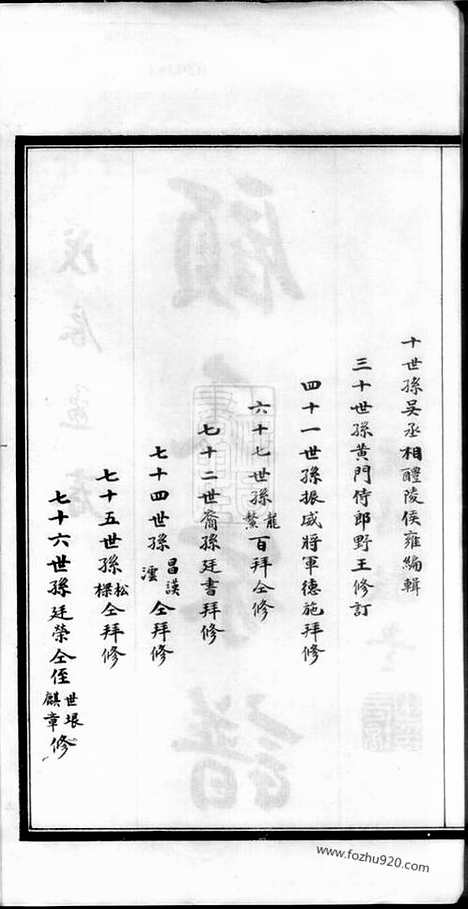 十世孫吳丞相醴陵侯雍編輯
三十世孫黃門侍郎野王修訂
四十一世孫振威將軍德施拜修
六十七世孫龍鰲百拜仝修
七十二世裔孫廷書拜修
七十四世孫昌謨澐仝拜修
七十五世孫松樑仝拜修
七十六世孫廷榮仝侄世垠麒章修
www.fozhu920.com